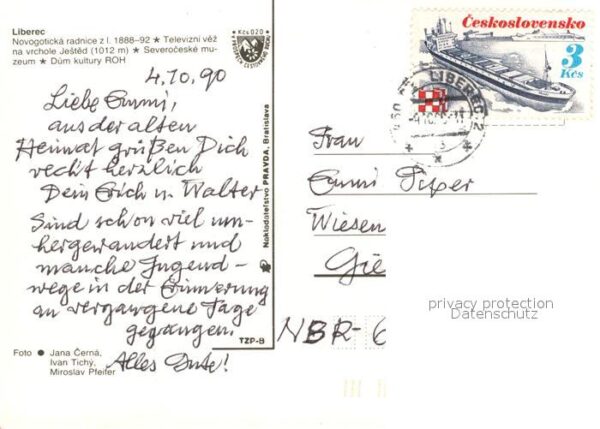 Liberec
Novogotická radnice z l. 1888-92 ★ Televizní věž
na vrchole Ještěd (1012 m) ★ Severočeské mu-
zeum ★ Dům kultury ROH
Kčs 0,20
Československo
3
Kčs
LIBEREC 2
4.10.90
Liebe Emmi,
aus der alten
Heimat grüßen Dich
recht herzlich
Dein Erich u. Walter
Sind schon viel um-
hergewandert und
manche Jugend-
wege in der Erinnerung
an vergangene Tage
gegangen.
Alles Gute!
Foto ● Jana Černá,
Ivan Tichý,
Miroslav Pfeifer
TZP-B
Nakladateľstvo PRAVDA, Bratislava
Frau
Emmi
Wiesen
Gie
NBR-6
privacy protection
Datenschutz